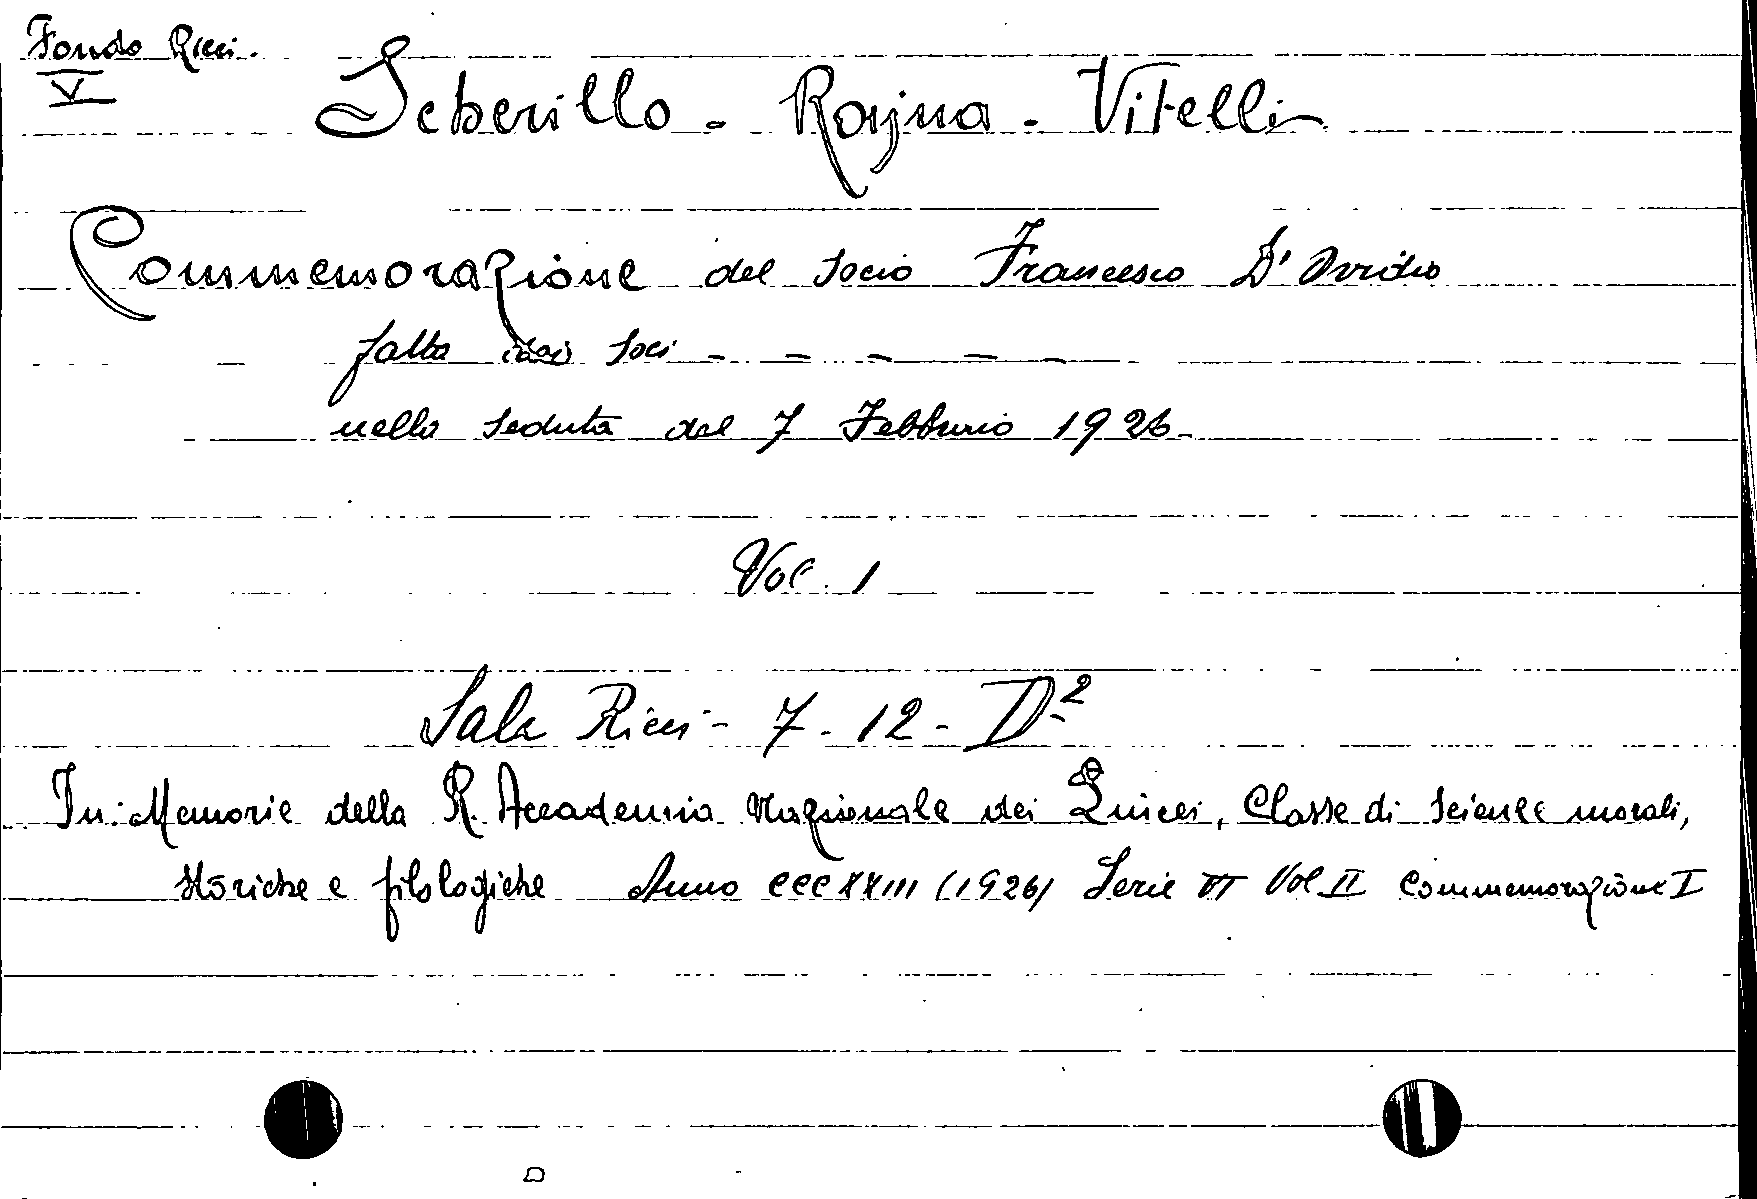 Fondo Ricci.
V
Scherillo - Rajna - Vitelli
Commemorazione del socio Francesco D'Ovidio
fatta dai soci - - - - -
nella seduta del 7 Febbraio 1926
Vol. 1
Sala Ricci - 7 - 12 - D²
In: Memorie della R. Accademia Nazionale dei Lincei, Classe di Scienze morali,
storiche e filologiche Anno CCCXXIII (1926) Serie VI Vol II Commemorazione I